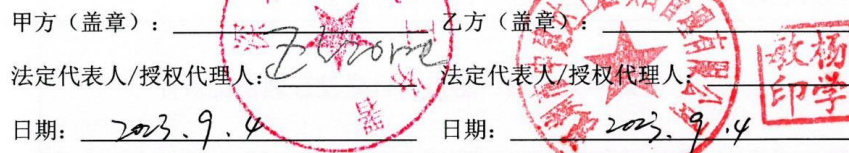 甲方（盖章）： 乙方（盖章）：
法定代表人/授权代理人： 法定代表人/授权代理人：
日期： 2023.9.4 日期： 2023.9.4
杨学敏印